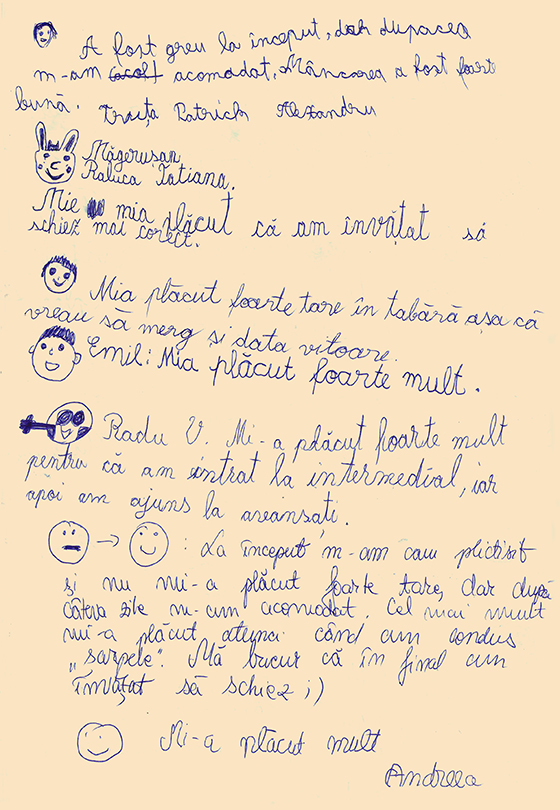 A fost greu la început, dar dupacea
m-am acomodat, Mâncarea a fost foarte
bună. Patrick Alexandru
Măgerușan
Raluca Tatiana.
Mie mia plăcut că am învățat să
schiez mai corect.
Mia plăcut foarte tare în tabără așa că
vreau să merg și data vitoare.
Emil: Mia plăcut foarte mult.
Radu V. Mi-a plăcut foarte mult
pentru că am intrat la intermedial, iar
apoi am ajuns la areansați.
: La început m-am cam plictisit
și nu mi-a plăcut foarte tare, dar după
câteva zile m-am acomodat. Cel mai mult
mi-a plăcut atunci când am condus
„sarpele". Mă bucur că în final am
învățat să schiez ;)
Mi-a plăcut mult
Andreea